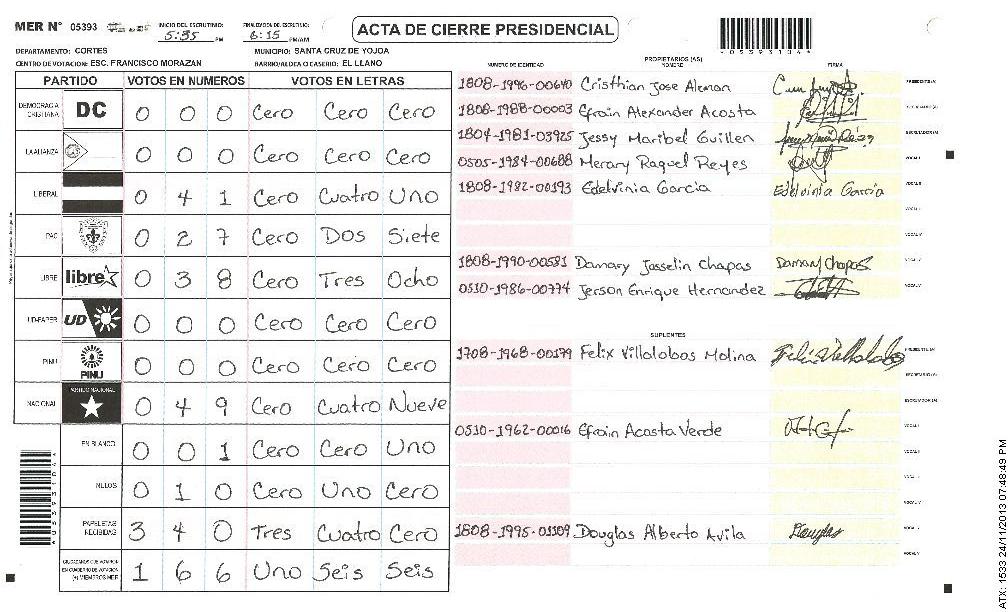 MER Nº 05393 INICIO DEL ESCRUTINIO: 5:35 PM FINALIZACION DEL ESCRUTINIO: 6:15 PM/AM ACTA DE CIERRE PRESIDENCIAL
DEPARTAMENTO: CORTES MUNICIPIO: SANTA CRUZ DE YOJOA
CENTRO DE VOTACION: ESC. FRANCISCO MORAZAN BARRIO/ALDEA O CASERIO: EL LLANO
PARTIDO VOTOS EN NUMEROS VOTOS EN LETRAS
DEMOCRACIA CRISTIANA DC 0 0 0 Cero Cero Cero
LA ALIANZA 0 0 0 Cero Cero Cero
LIBERAL 0 4 1 Cero Cuatro Uno
PAC 0 2 7 Cero Dos Siete
LIBRE libre 0 3 8 Cero Tres Ocho
UD-FAPER UD 0 0 0 Cero Cero Cero
PINU PINU 0 0 0 Cero Cero Cero
NACIONAL PARTIDO NACIONAL 0 4 9 Cero Cuatro Nueve
EN BLANCO 0 0 1 Cero Cero Uno
NULOS 0 1 0 Cero Uno Cero
PAPELETAS RECIBIDAS 3 4 0 Tres Cuatro Cero
CIUDADANOS QUE VOTARON EN CUADERNO DE VOTACION (+) MIEMBROS MER 1 6 6 Uno Seis Seis
PROPIETARIOS (AS)
NUMERO DE IDENTIDAD NOMBRE FIRMA
1808-1996-00640 Cristhian Jose Aleman PRESIDENTE(A)
1808-1988-00003 Efrain Alexander Acosta SECRETARIO(A)
1804-1981-03925 Jessy Maribel Guillen ESCRUTADOR(A)
0505-1984-00688 Merary Raquel Reyes VOCAL I
1808-1982-00193 Edelvinia Garcia Edelvinia Garcia VOCAL II
VOCAL III
VOCAL IV
1808-1990-00581 Damary Josselin Chapas Damary Chapas VOCAL V
0510-1986-00774 Jerson Enrique Hernandez VOCAL VI
SUPLENTES
1708-1968-00179 Felix Villalobos Molina Felix Villalobos PRESIDENTE(A)
SECRETARIO(A)
ESCRUTADOR(A)
0510-1962-00016 Efrain Acosta Verde VOCAL I
VOCAL II
VOCAL III
VOCAL IV
1808-1995-01109 Douglas Alberto Avila Douglas VOCAL V
VOCAL VI
ATX: 1533 24/11/2013 07:48:49 PM